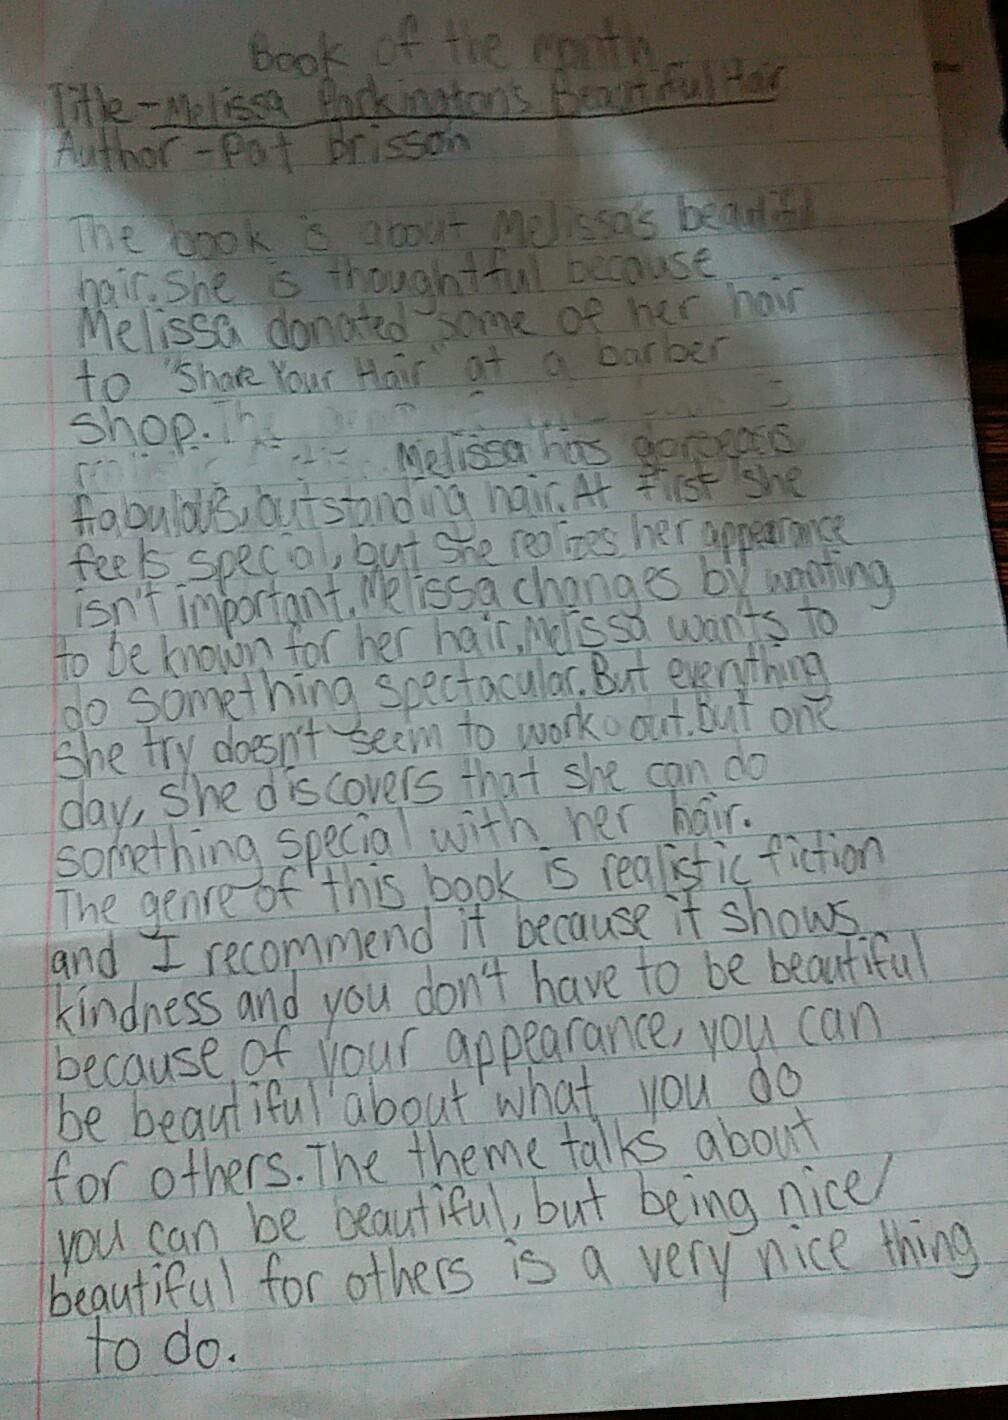 Book of the month
Title-Melissa Parkinaton's Beautiful Hair
Author-Pat Brisson
The book is about Melissa's beautiful
hair. She is thoughtful because
Melissa donated some of her hair
to "Share Your Hair" at a barber
shop. The
Melissa has
fabulous, outstanding hair. At first she
feels special, but she realizes her appearance
isn't important. Melissa changes by wanting
to be known for her hair. Melissa wants to
do something spectacular. But everything
she try doesn't seem to work out. But one
day, she discovers that she can do
something special with her hair.
The genre of this book is realistic fiction
and I recommend it because it shows
kindness and you don't have to be beautiful
because of your appearance, you can
be beautiful about what you do
for others. The theme talks about
you can be beautiful, but being nice/
beautiful for others is a very nice thing
to do.